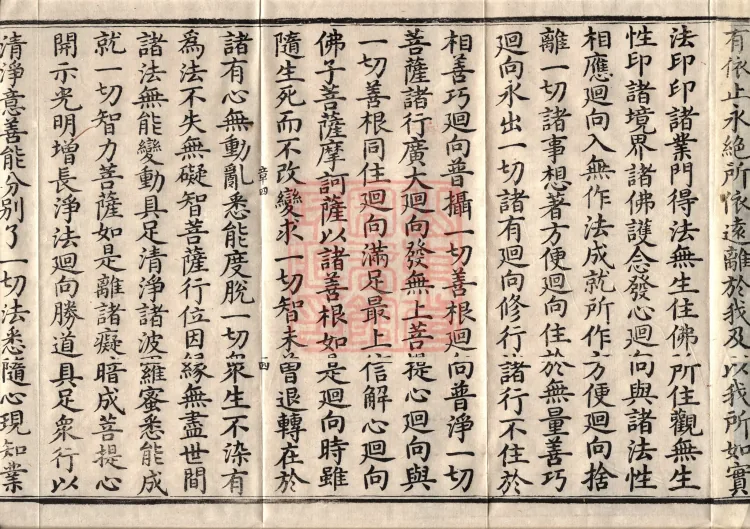 有依止永絶所依遠離於我及以我所如實
法印印諸業門得法無生住佛所住觀無生
性印諸境界諸佛護念發心迴向與諸法性
相應迴向入無作法成就所作方便迴向捨
離一切諸事想著方便迴向住於無量善巧
迴向永出一切諸有迴向修行諸行不住於
相善巧迴向普攝一切善根迴向普淨一切
菩薩諸行廣大迴向發無上菩提心迴向與
一切善根同住迴向滿足最上信解心迴向
佛子菩薩摩訶薩以諸善根如是迴向時雖
隨生死而不改變求一切智未曽退轉在於
章四
四
諸有心無動亂悉能度脫一切衆生不染有
爲法不失無礙智菩薩行位因緣無盡世間
諸法無能變動具足清淨諸波羅蜜悉能成
就一切智力菩薩如是離諸癡暗成菩提心
開示光明增長淨法迴向勝道具足衆行以
清淨意善能分别了一切法悉隨心現知業